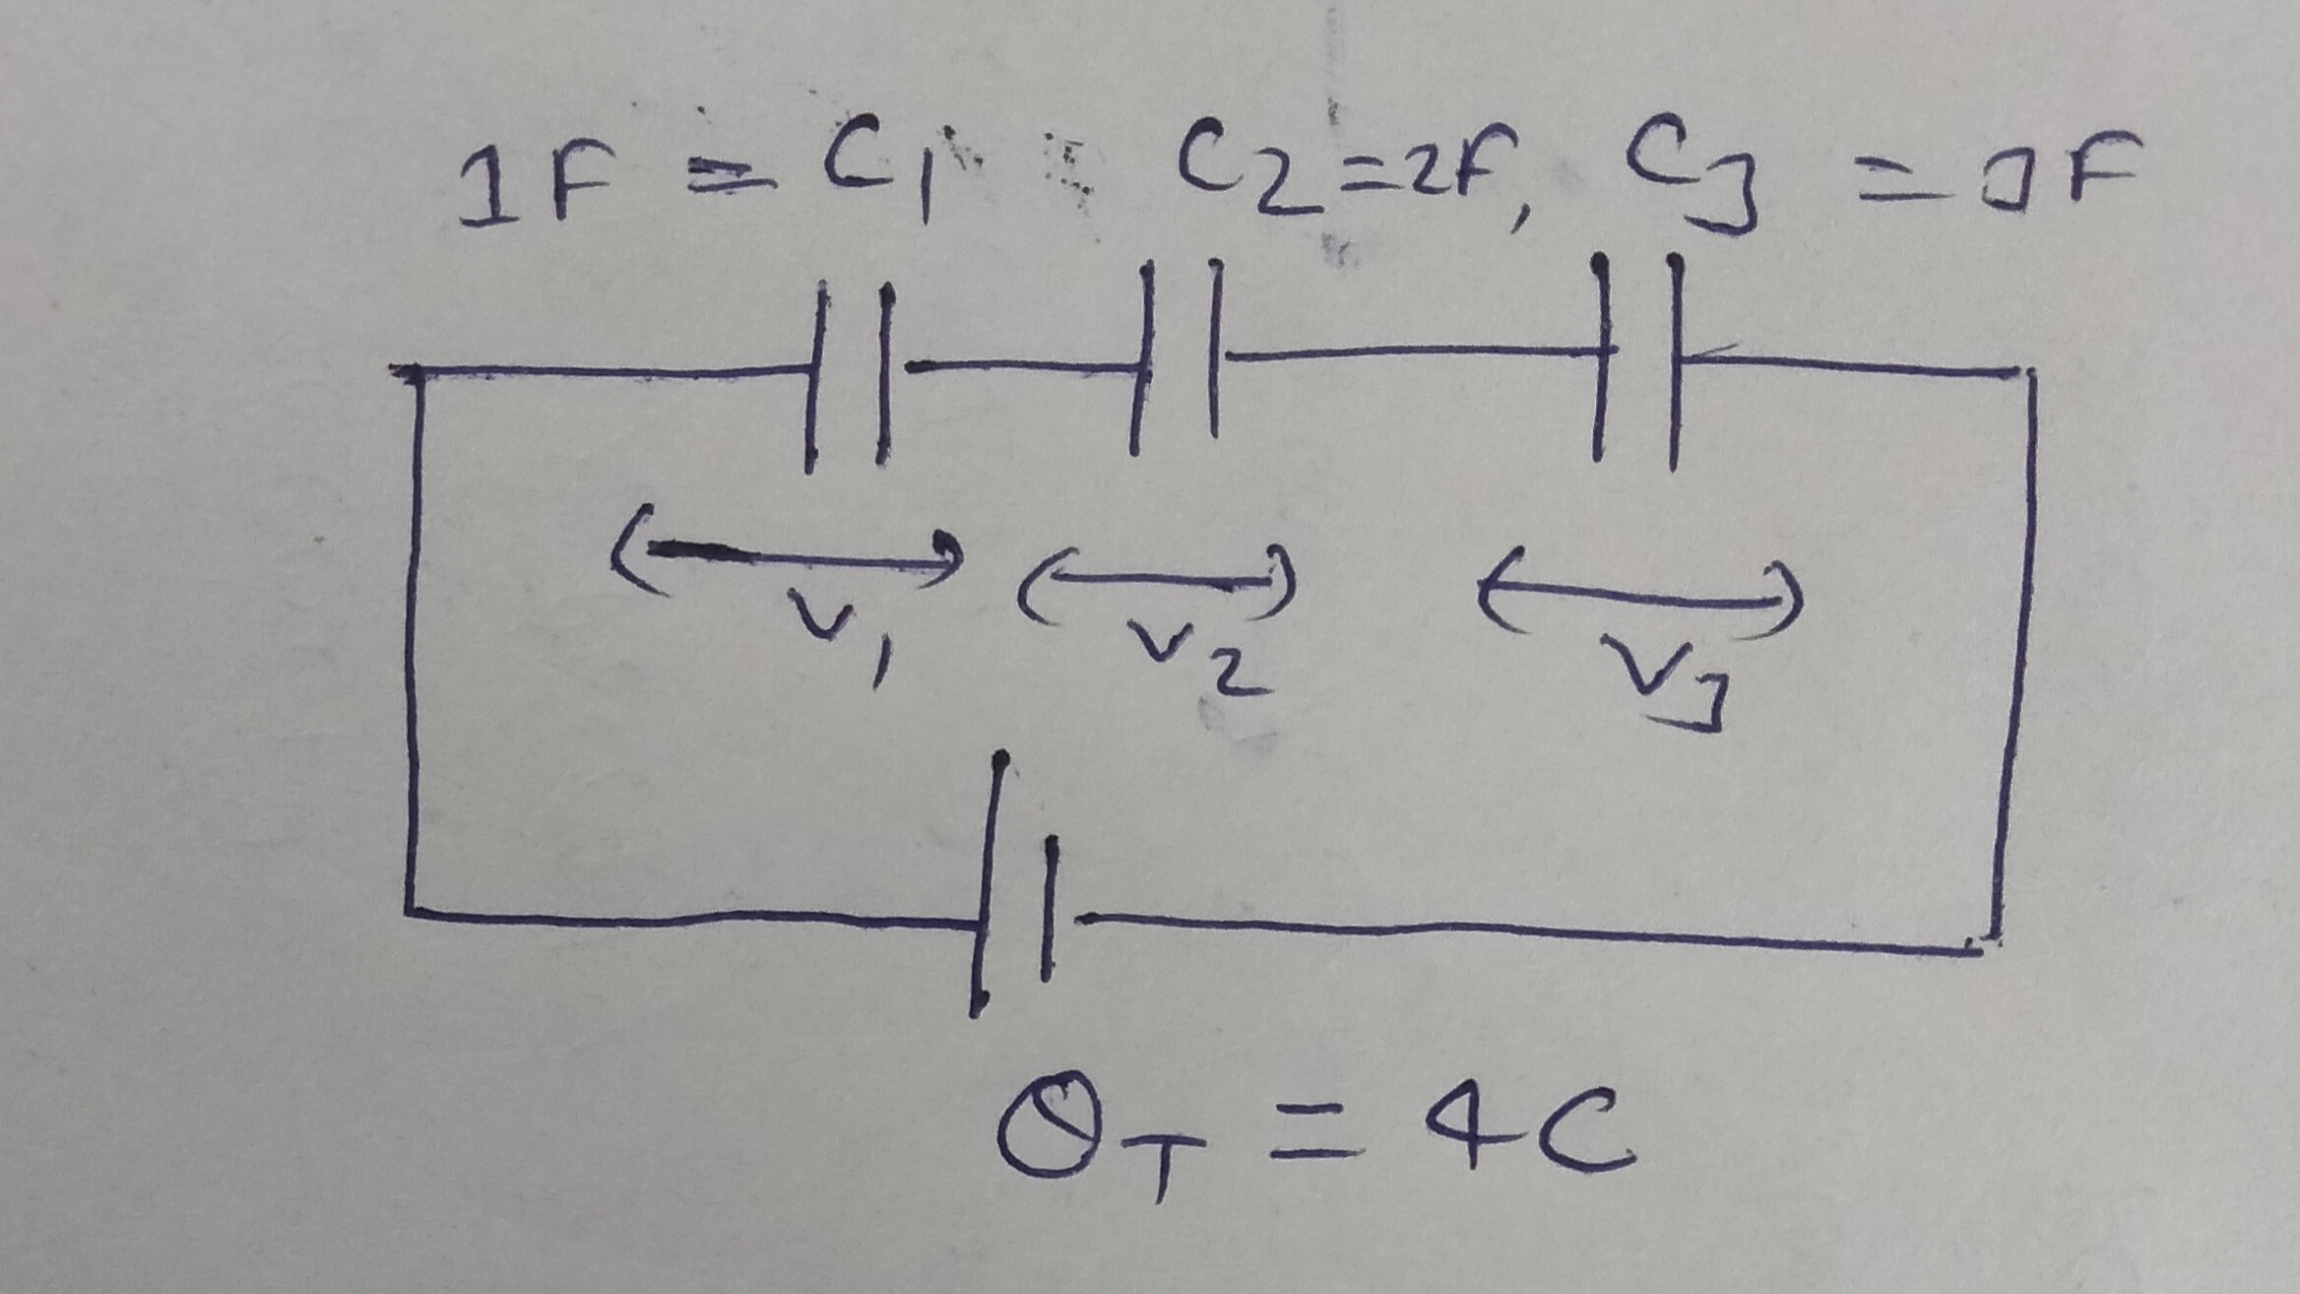 1F = C1 C2 = 2F, C3 = F
V1 V2 V3
QT = 4C